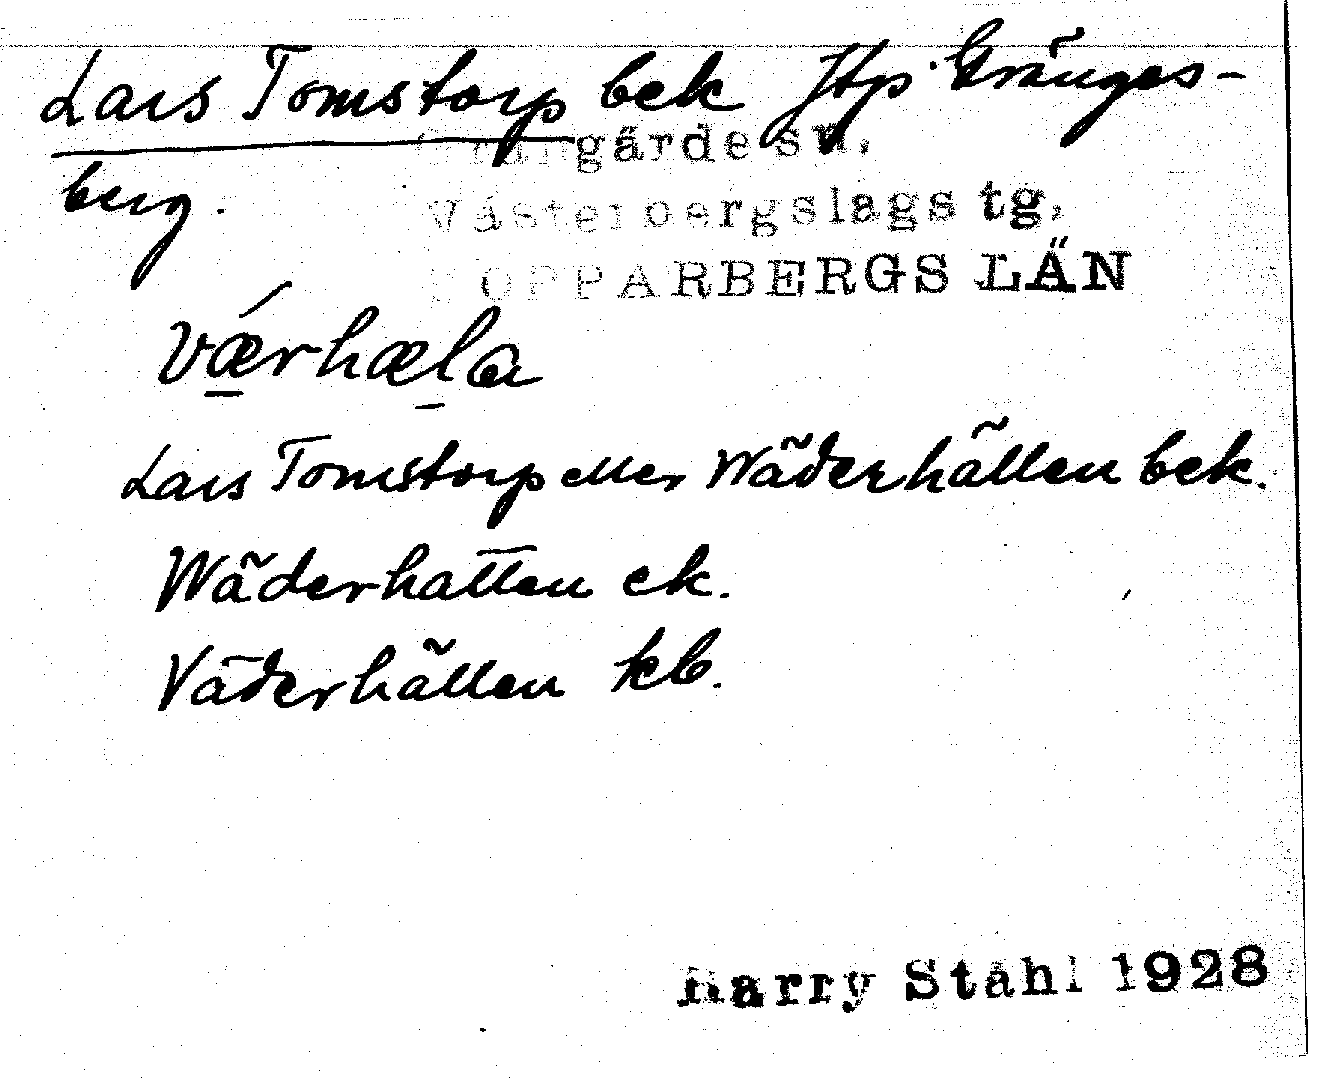 Lars Tomstorp bek Htp Gränges-
berg.
Grangärde sn.
Västerbergslags tg.
KOPPARBERGS LÄN
værhæla
Lars Tomstorp eller Wäderhällen bek.
Wäderhatten ek.
Väderhällen kb.
Harry Ståhl 1928